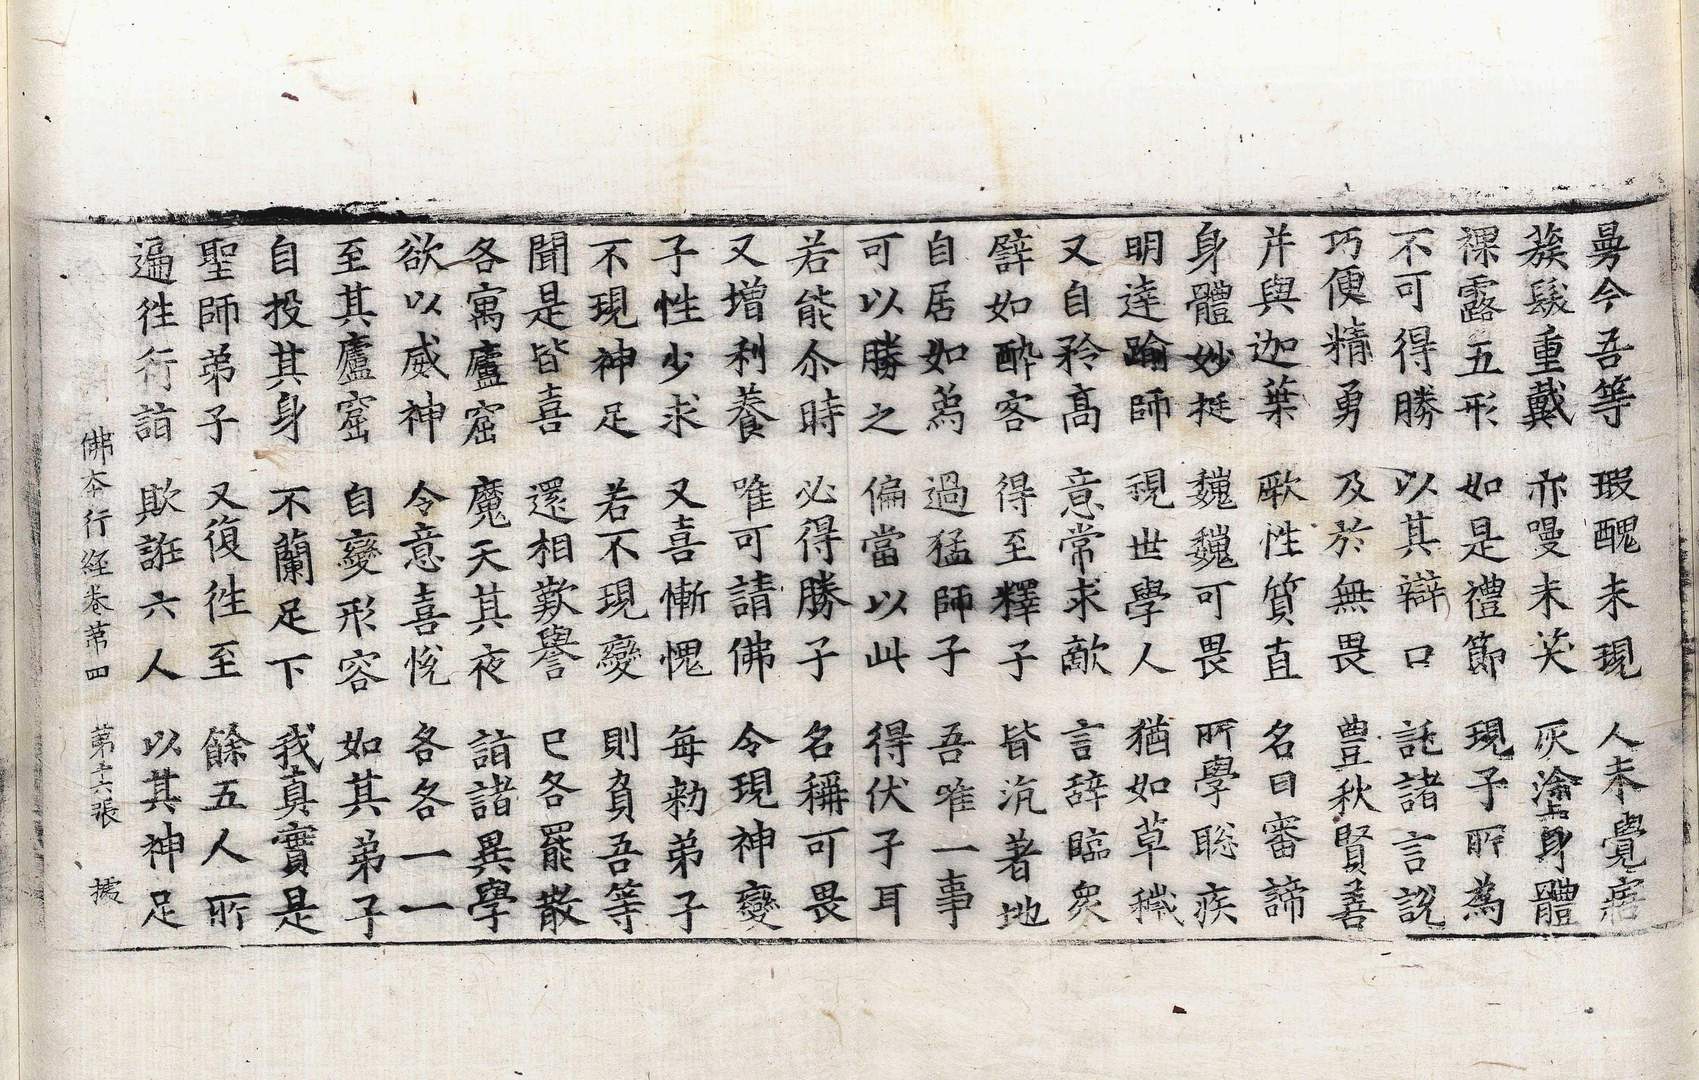 曼今吾等 瑕醜未現 人未覺寤
蔟髮重戴 亦嘜未笑 灰塗身體
裸露五形 如是禮節 現子所為
不可得勝 以其辯口 託諸言說
巧便精勇 及於無畏 豊秋賢善
并與迦葉 厥性質直 名曰審諦
身體妙挺 巍巍可畏 所學聡疾
明達踰師 現世學人 猶如草穢
又自矜高 意常求敵 言辞臨衆
譬如酔客 得至釋子 皆汎著地
自居如為 過猛師子 吾唯一事
可以勝之 偏當以此 得伏子耳
若能尒時 必得勝子 名稱可畏
又増利養 唯可請佛 令現神變
子性少求 又喜慚愧 每勑弟子
不現神足 若不現變 則負吾等
聞是皆喜 還相歎譽 已各罷散
各寓廬窟 魔天其夜 詣諸異學
欲以威神 令意喜悅 各各一一
至其廬窟 自變形容 如其弟子
自投其身 不蘭足下 我真實是
聖師弟子 又復徃至 餘五人所
遍徃行詣 欺誑六人 以其神足
佛本行經卷苐四 苐十六張 據